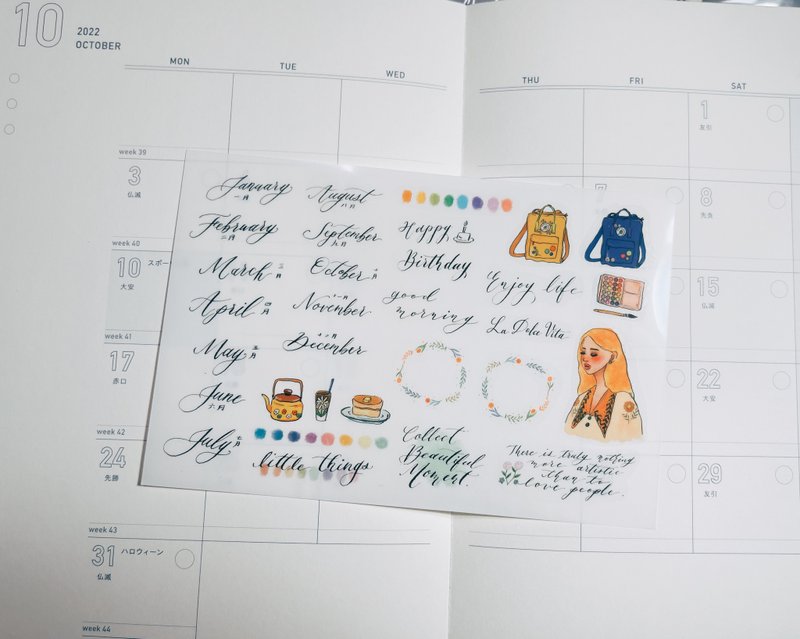 10
2022
OCTOBER
MON
TUE
WED
THU
FRI
SAT
week 39
3
仏滅
week 40
10
スポー
大安
week 41
17
赤口
week 42
24
先勝
week 43
31
ハロウィーン
仏滅
week 44
1
友引
7
8
先負
15
仏滅
22
大安
29
友引
January
一月
February
二月
March
三月
April
四月
May
五月
June
六月
July
七月
August
八月
September
九月
October
十月
November
十一月
December
十二月
Happy
Birthday
good
morning
Enjoy life
La Dolce Vita
little things
Collect
Beautiful
Moment.
There is truly nothing
more artistic
than to
love people.